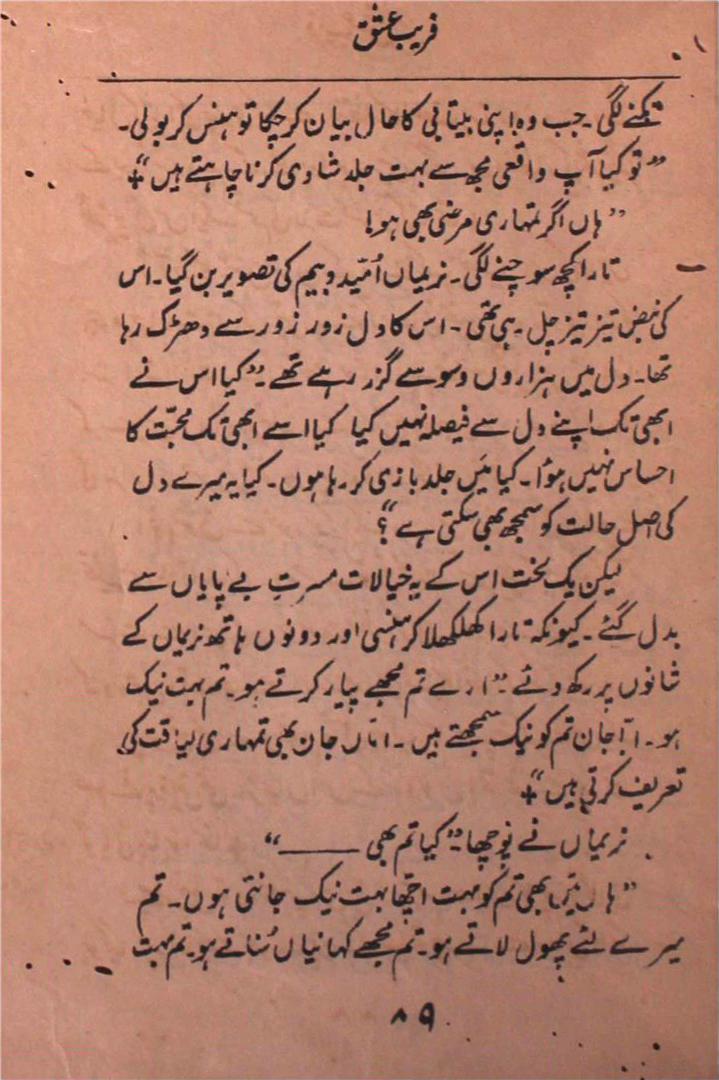 فریب عشق
تکنے لگی۔ جب وہ اپنی بیتابی کا حال بیان کر چکا تو ہنس کر بولی۔
”تو کیا آپ واقعی مجھ سے بہت جلد شادی کرنا چاہتے ہیں“؟
”ہاں اگر تمہاری مرضی بھی ہو!
تارا کچھ سوچنے لگی۔ نریماں اُمّید و بیم کی تصویر بن گیا۔ اس
کی نبض تیز تیز چل رہی تھی۔ اس کا دل زور زور سے دھڑک رہا
تھا۔ دل میں ہزاروں وسوسے گزر رہے تھے۔ ”کیا اس نے
ابھی تک اپنے دل سے فیصلہ نہیں کیا کیا اسے ابھی تک محبّت کا
احساس نہیں ہوٴا۔ کیا میَں جلد بازی کر رہا ہوں۔ کیا یہ میرے دل
کی اصل حالت کو سمجھ بھی سکتی ہے“؟
لیکن یک لخت اس کے یہ خیالات مسرتِ بے پایاں سے
بدل گئے۔ کیونکہ تارا کھلکھلا کر ہنسی اور دونوں ہاتھ نریماں کے
شانوں پر رکھ دئے۔ ”ارے تم مجھے پیار کرتے ہو۔ تم بہت نیک
ہو۔ ابّا جان تم کو نیک سمجھتے ہیں۔ امّاں جان بھی تمہاری لیاقت کی
تعریف کرتی ہیں“؟
نریماں نے پوچھا۔ ”کیا تم بھی ـــــــ“
”ہاں میَں بھی تم کو بہت اچھّا بہت نیک جانتی ہوں۔ تم
میرے لئے پھول لاتے ہو۔ تم مجھے کہانیاں سُناتے ہو۔ تم بہت
۸۹